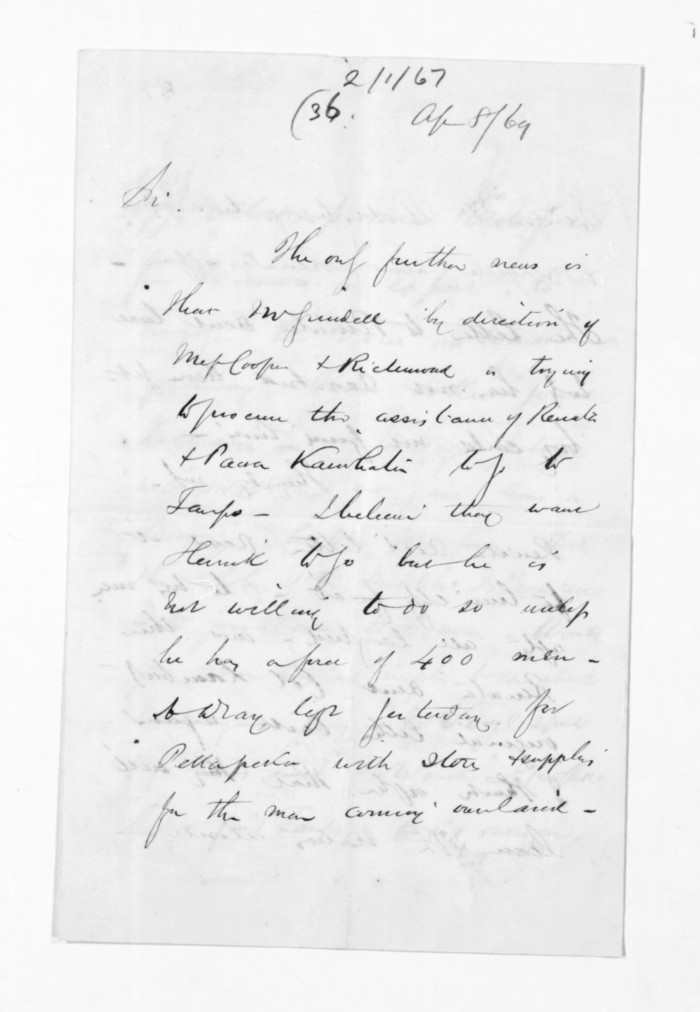 2/1/67
(36.
Apr 8/69
Sir.
The only further news is
that Mr Grindell by direction of
Messrs Cooper & Richmond is trying
to procure the assistance of Renata
& Paora Kaiwhata to go to
Taupo — I believe they want
Henare to go but he is
not willing to do so unless
he has a force of 400 men —
A dray left yesterday for
with store & supplies
for the men coming overland —